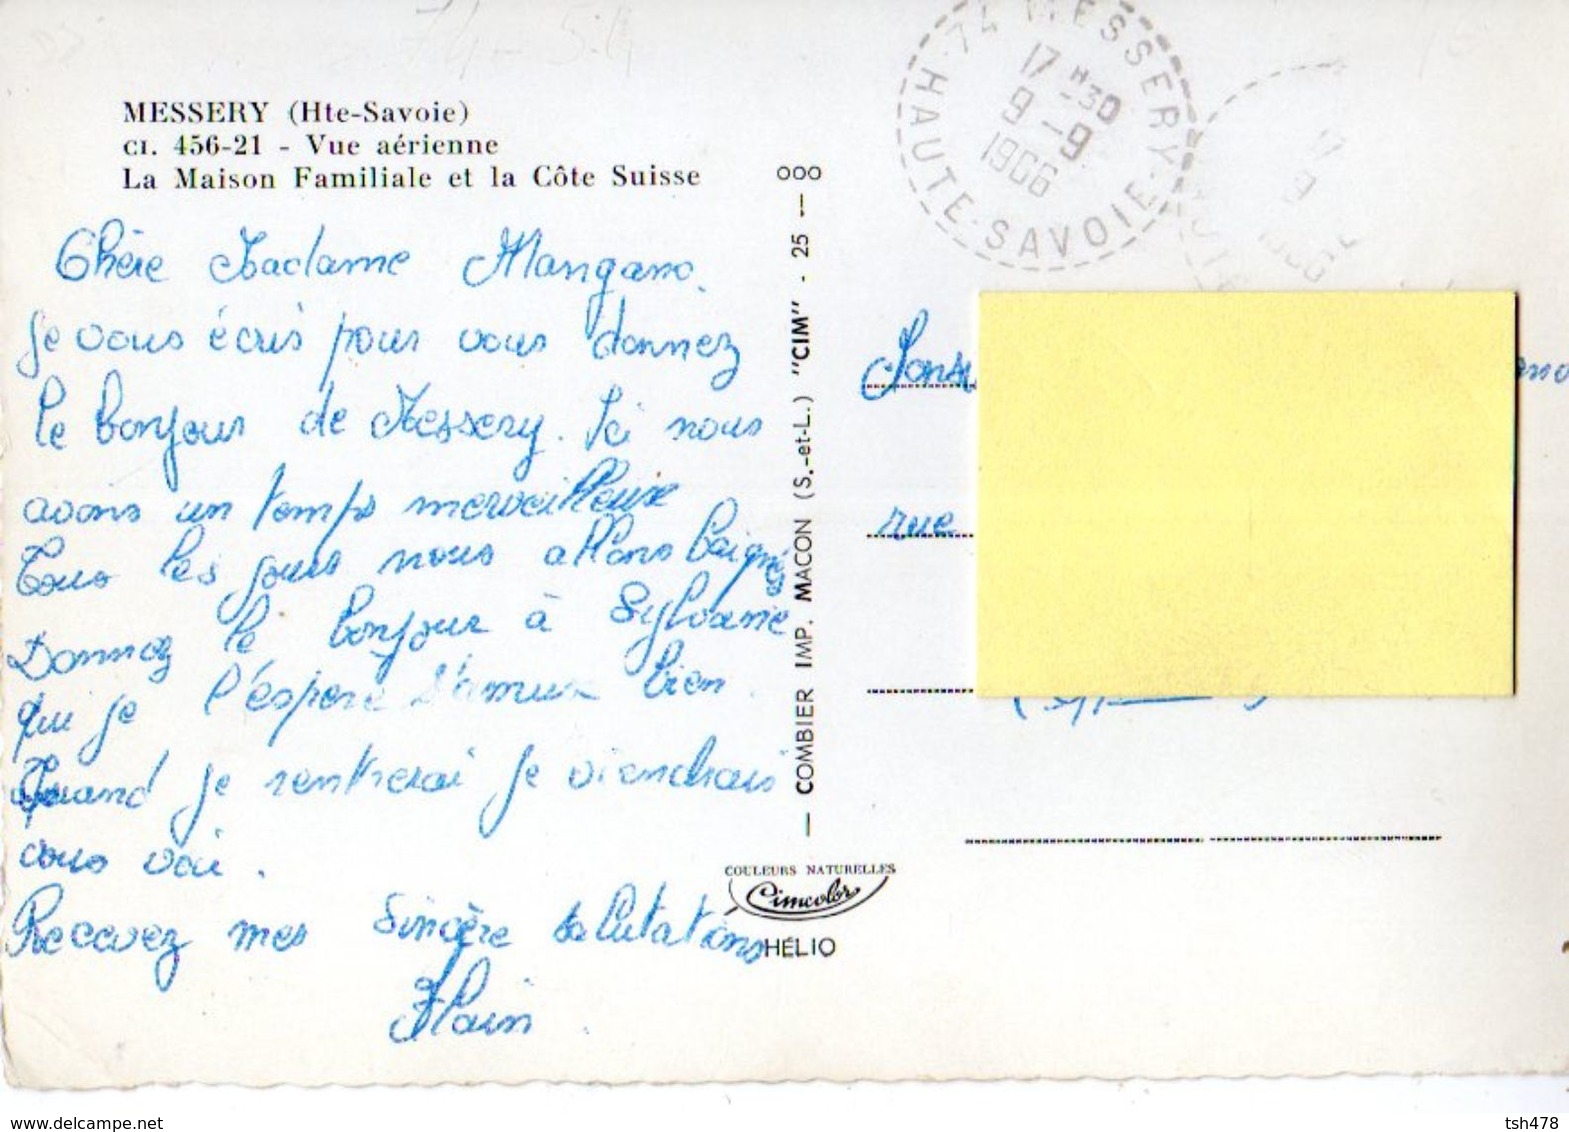 MESSERY (Hte-Savoie)
CI. 456-21 - Vue aérienne
La Maison Familiale et la Côte Suisse
Chère Madame Mangano.
Je vous écris pour vous donnez
le bonjour de Messery. Ici nous
avons un temps merveilleux
Tous les jours nous allons baignés
Donnez le bonjour à Sylvanie
que je l'espere s'amuse bien.
Quand je rentrerai je viendrais
vous voir.
Recevez mes sincère salutations
Alain.
COMBIER IMP. MACON (S.-et-L.) "CIM" - 25 — 000
COULEURS NATURELLES
Cimcolor
HÉLIO
74 MESSERY
17 H 30
9 - 9
1966
HAUTE-SAVOIE
17
9
rue
www.delcampe.net
tsh478